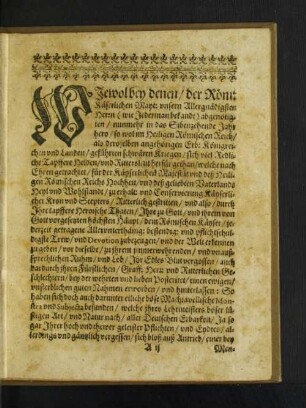 WJewol bey denen / der Röm:
Käyserlichen Mayt: unsern Allergnädigsten
Herrn (wie Jederman bekandt) abgenötig-
ten / nunmehr in das Sibenzehende Jahr
hero / so wol im Heiligen Römischen Reich /
als deroselben angehörigen Erb: Königrei-
chen und Landen / geführten schwären Kriegen / sich viel Redli-
che Tapffere Helden / und Ritterslüth herfür gethan / welche nach
Ehren getrachtet / für der Käyserlichen Majestät und deß Heili-
gen Römischen Reichs Hochheit / und deß geliebten Vaterlands
Heyl und Wolfahrt / zu erhalt: und Conservierung Käyserli-
cher Cron und Scepters / Ritterlich gestritten / und also / durch
Ihre tapffere Heroische Thaten / Ihre zu Gott / und ihrem von
Gott vorgesetzten höchsten Häupt / dem Römischen Käyser / je-
derzeit getragene Allerunterthänig: bestendig: und pflichtschul-
digste Trew / und Devotion zubezeigen / und der Welt erkennen
zugeben / vor dieselbe / zu ihrem immerwehrenden / und unauß-
sprechlichen Ruhm / und Lob / Ihr Edles Blut vergossen / auch
dardurch ihren Fürstlichen / Graff: Herr: und Ritterlichen Ge-
schlechtern / bey der wehrten und lieben Posteritet / einen ewigen /
unsterblichen guten Nahmen erworben / und hinterlassen: So
haben sich doch auch darunter etliche böse Machiavellische Mon-
stra und Subjecta befunden / welche ihres Lehrmeisters böser lä-
stigen Art / und Natur nach / aller Deutschen Erbarkeit / Ja so
gar Ihrer hoch und schwer geleister Pflichten / und Eydes / al-
lerdings und gäntzlich vergessen / sich bloß auß Antrieb / einer bey
A ij
Men-